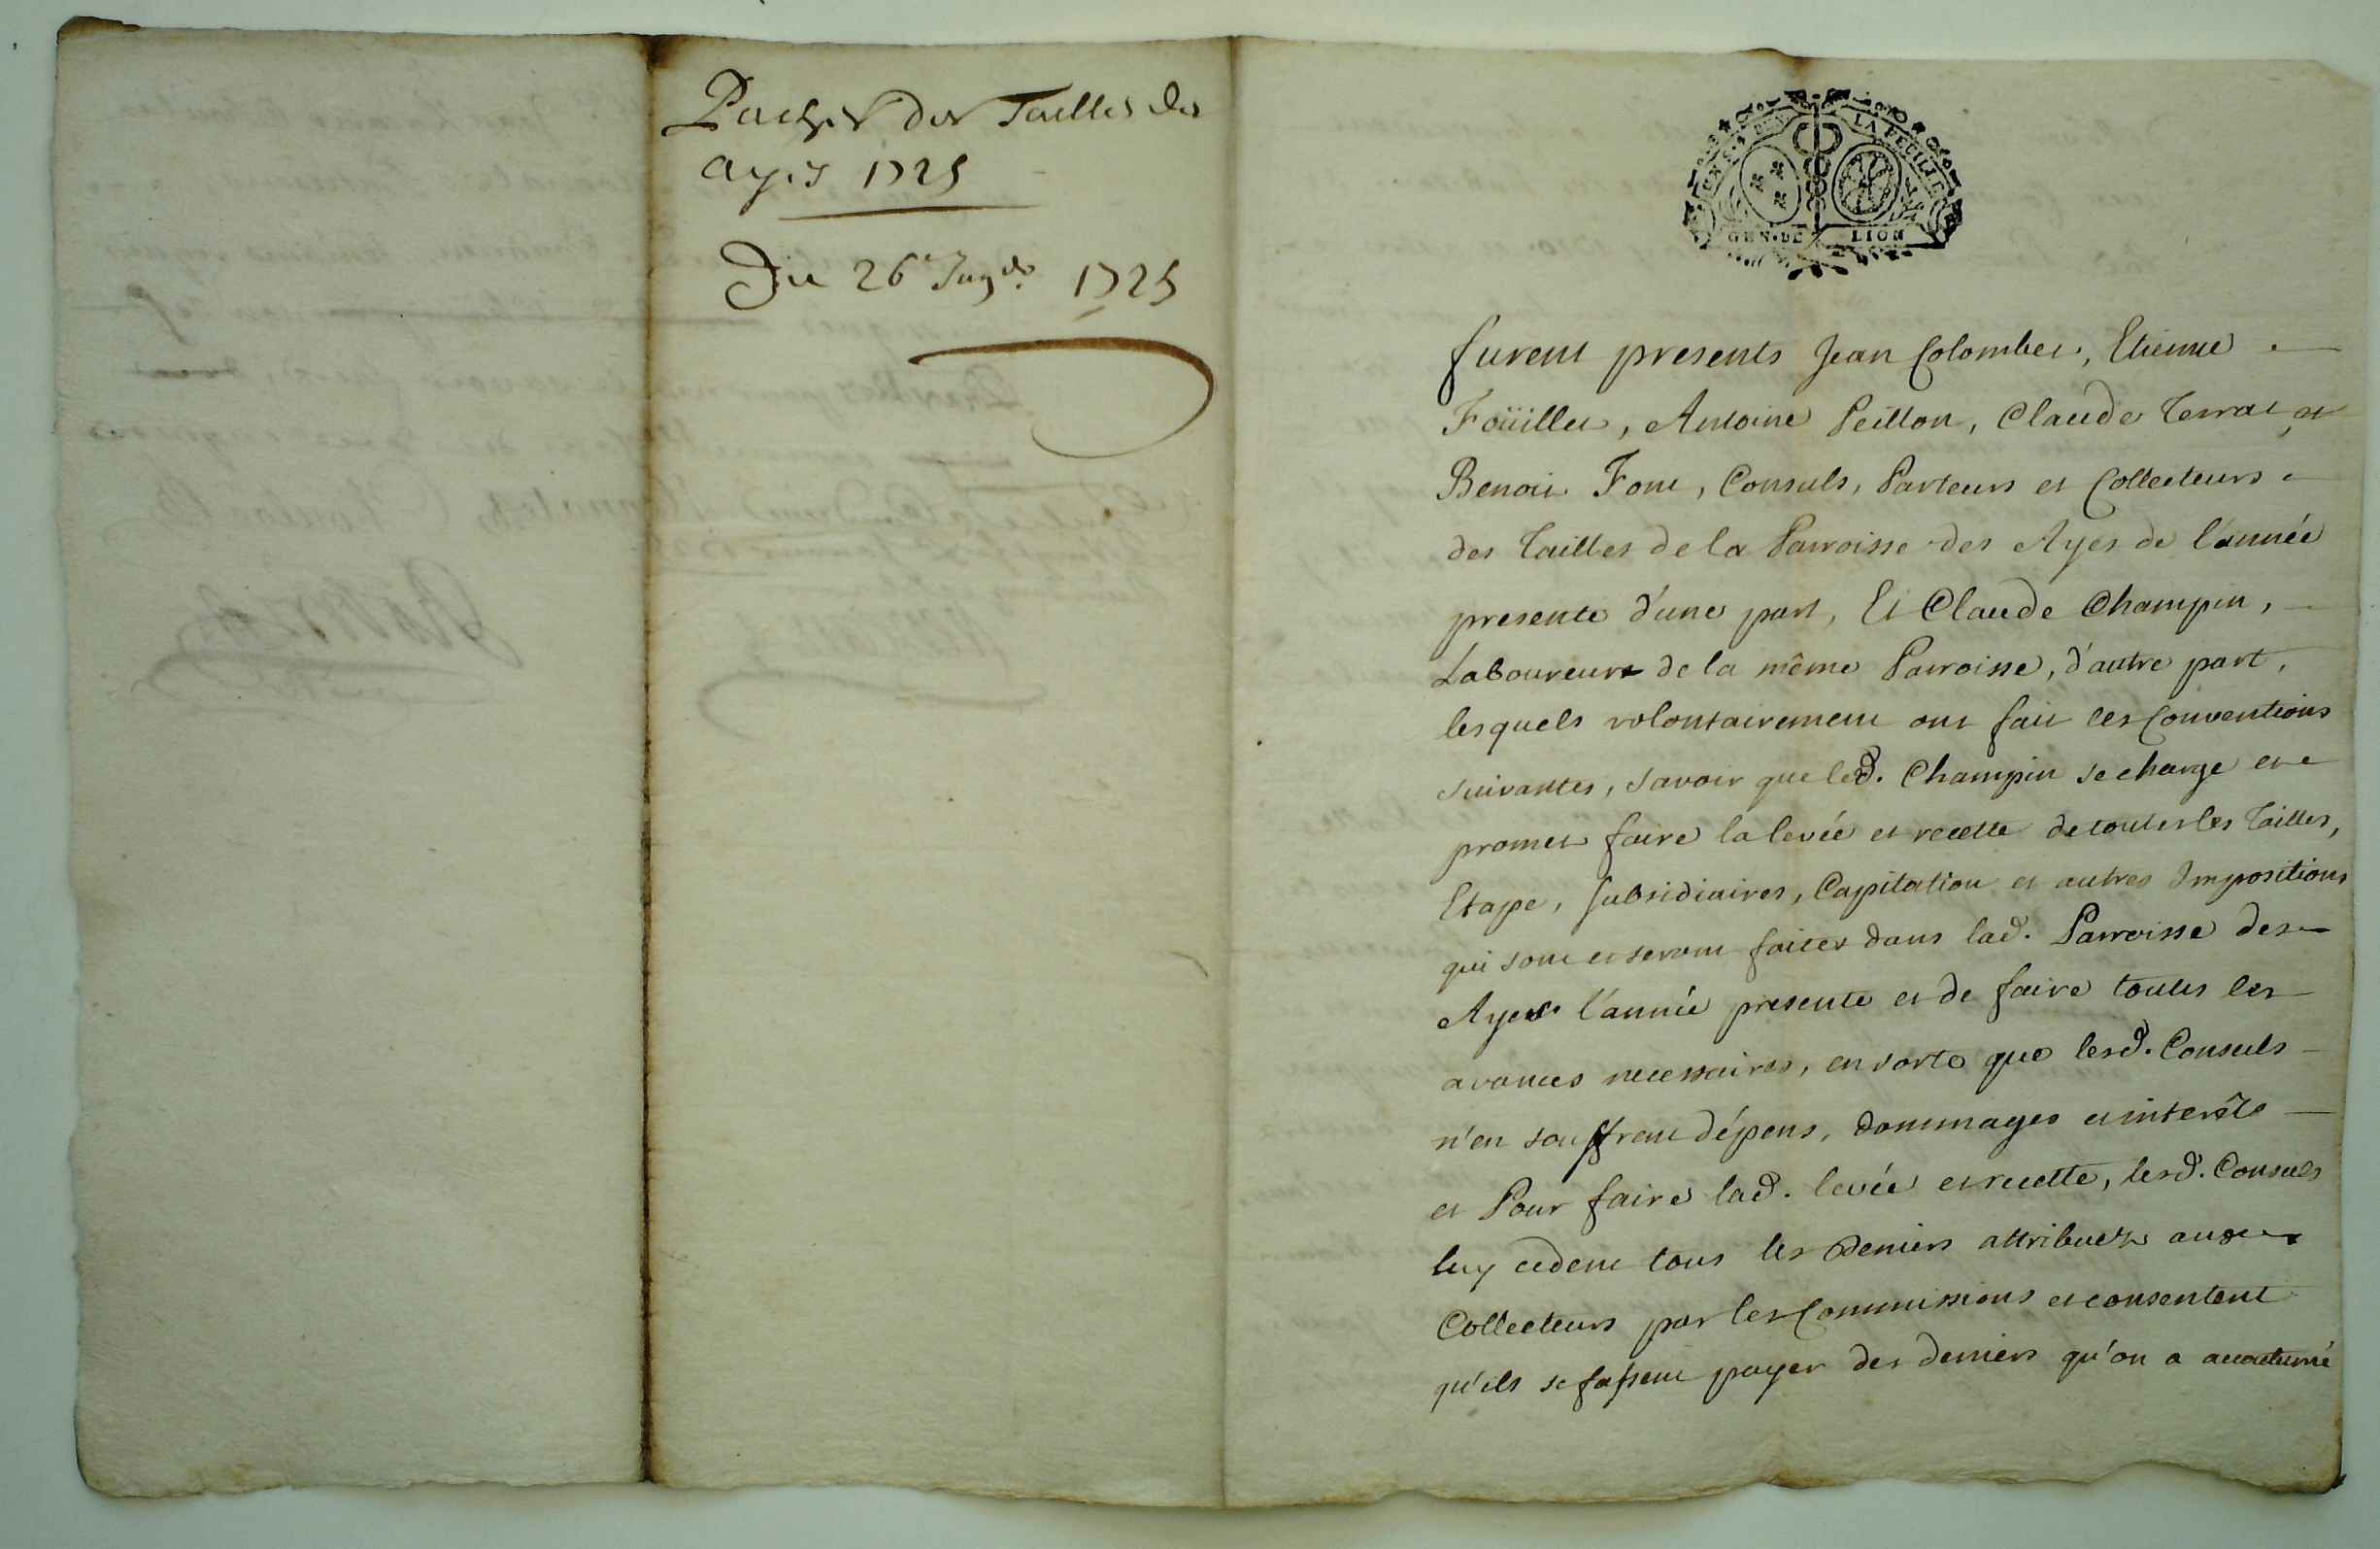 Pachés des Tailles des
ayes 1725
Du 26e 1725
LA FEUILLE
GEN·DE LION
furent presents Jean Colombet, Etienne
Foüillet, Antoine Peillon, Claude Terrat et
Benoit Font, Consuls, Parteurs et Collecteurs
des Tailles de la Parroisse des Ayes de l'année
presente d'une part, Et Claude Champin,
Laboureur de la même Parroisse, d'autre part,
lesquels volontairement ont fait les Conventions
suivantes, savoir que led. Champin se charge et
promet faire la levée et recette de toutes les Tailles,
Etape, Subsidiaires, Capitation et autres Impositions
qui sont et seront faites dans lad. Parroisse des
Ayes l'année presente et de faire toutes les
avances necessaires, en sorte que lesd. Consuls
n'en souffrent dépens, dommages et interêts
et Pour faire lad. levée et recette, lesd. Consuls
luy cedent tous les Deniers attribuez aux
Collecteurs par les Commissions et consentent
qu'ils se fassent payer des deniers qu'on a accoutumé